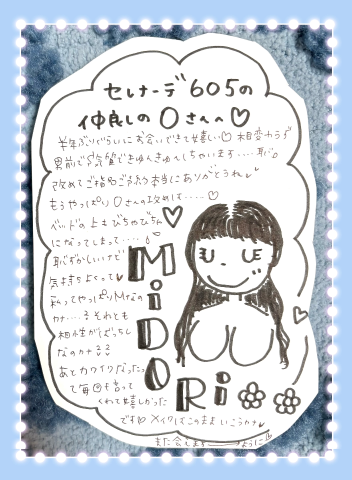 セレナーデ605の
仲良しの○さんへ♡
半年ぶりぐらいにお会いできて嬉しい♡相変わらず
男前で雰囲気できゅんきゅんしちゃいます....恥。
改めてご指名ご予約本当にありがとうれ
もうやっぱり○さんの攻めはす....♡
ベッドの上もびちゃびちゃ
になってしまって....
恥ずかしいけど
気持ちよくって♥
私ってやっぱりMなの
カナ...?それとも
相性がばっちし
なのカナ??
あとカワイクなったっ
て毎回も言って
くれて嬉しかった
です♡メイクしてこのままいこうカナ♥
また会えます ように
MiDORi